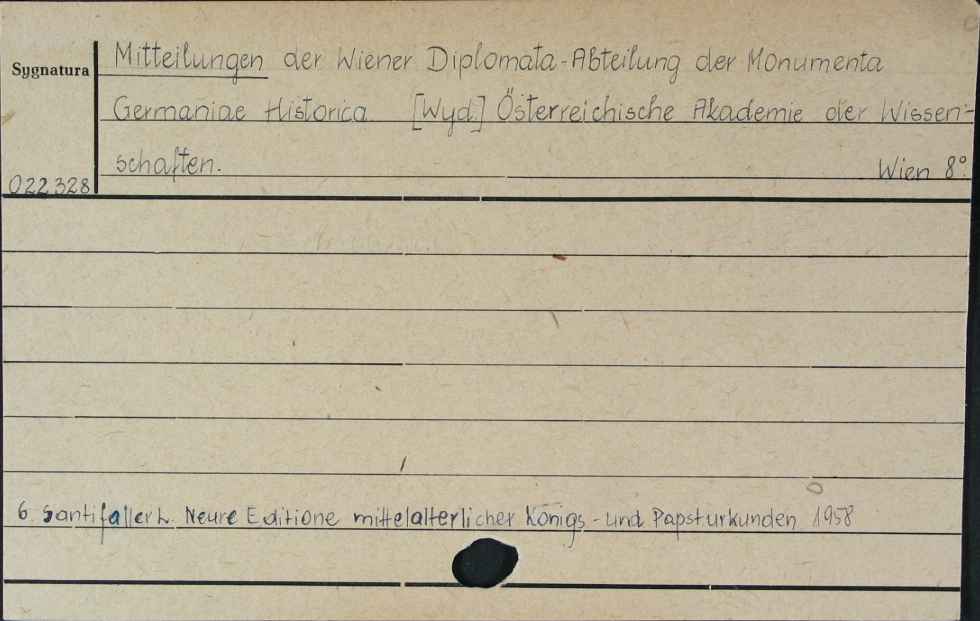 Mitteilungen der Wiener Diplomata-Abteilung der Monumenta
Sygnatura
Germaniae Historica. [Wyd.] Österreichische Akademie der Wissen-
schaften. Wien 8°.
022328
6. Santifaller L. Neure Editione mittelalterlicher Königs-und Papsturkunden 1958